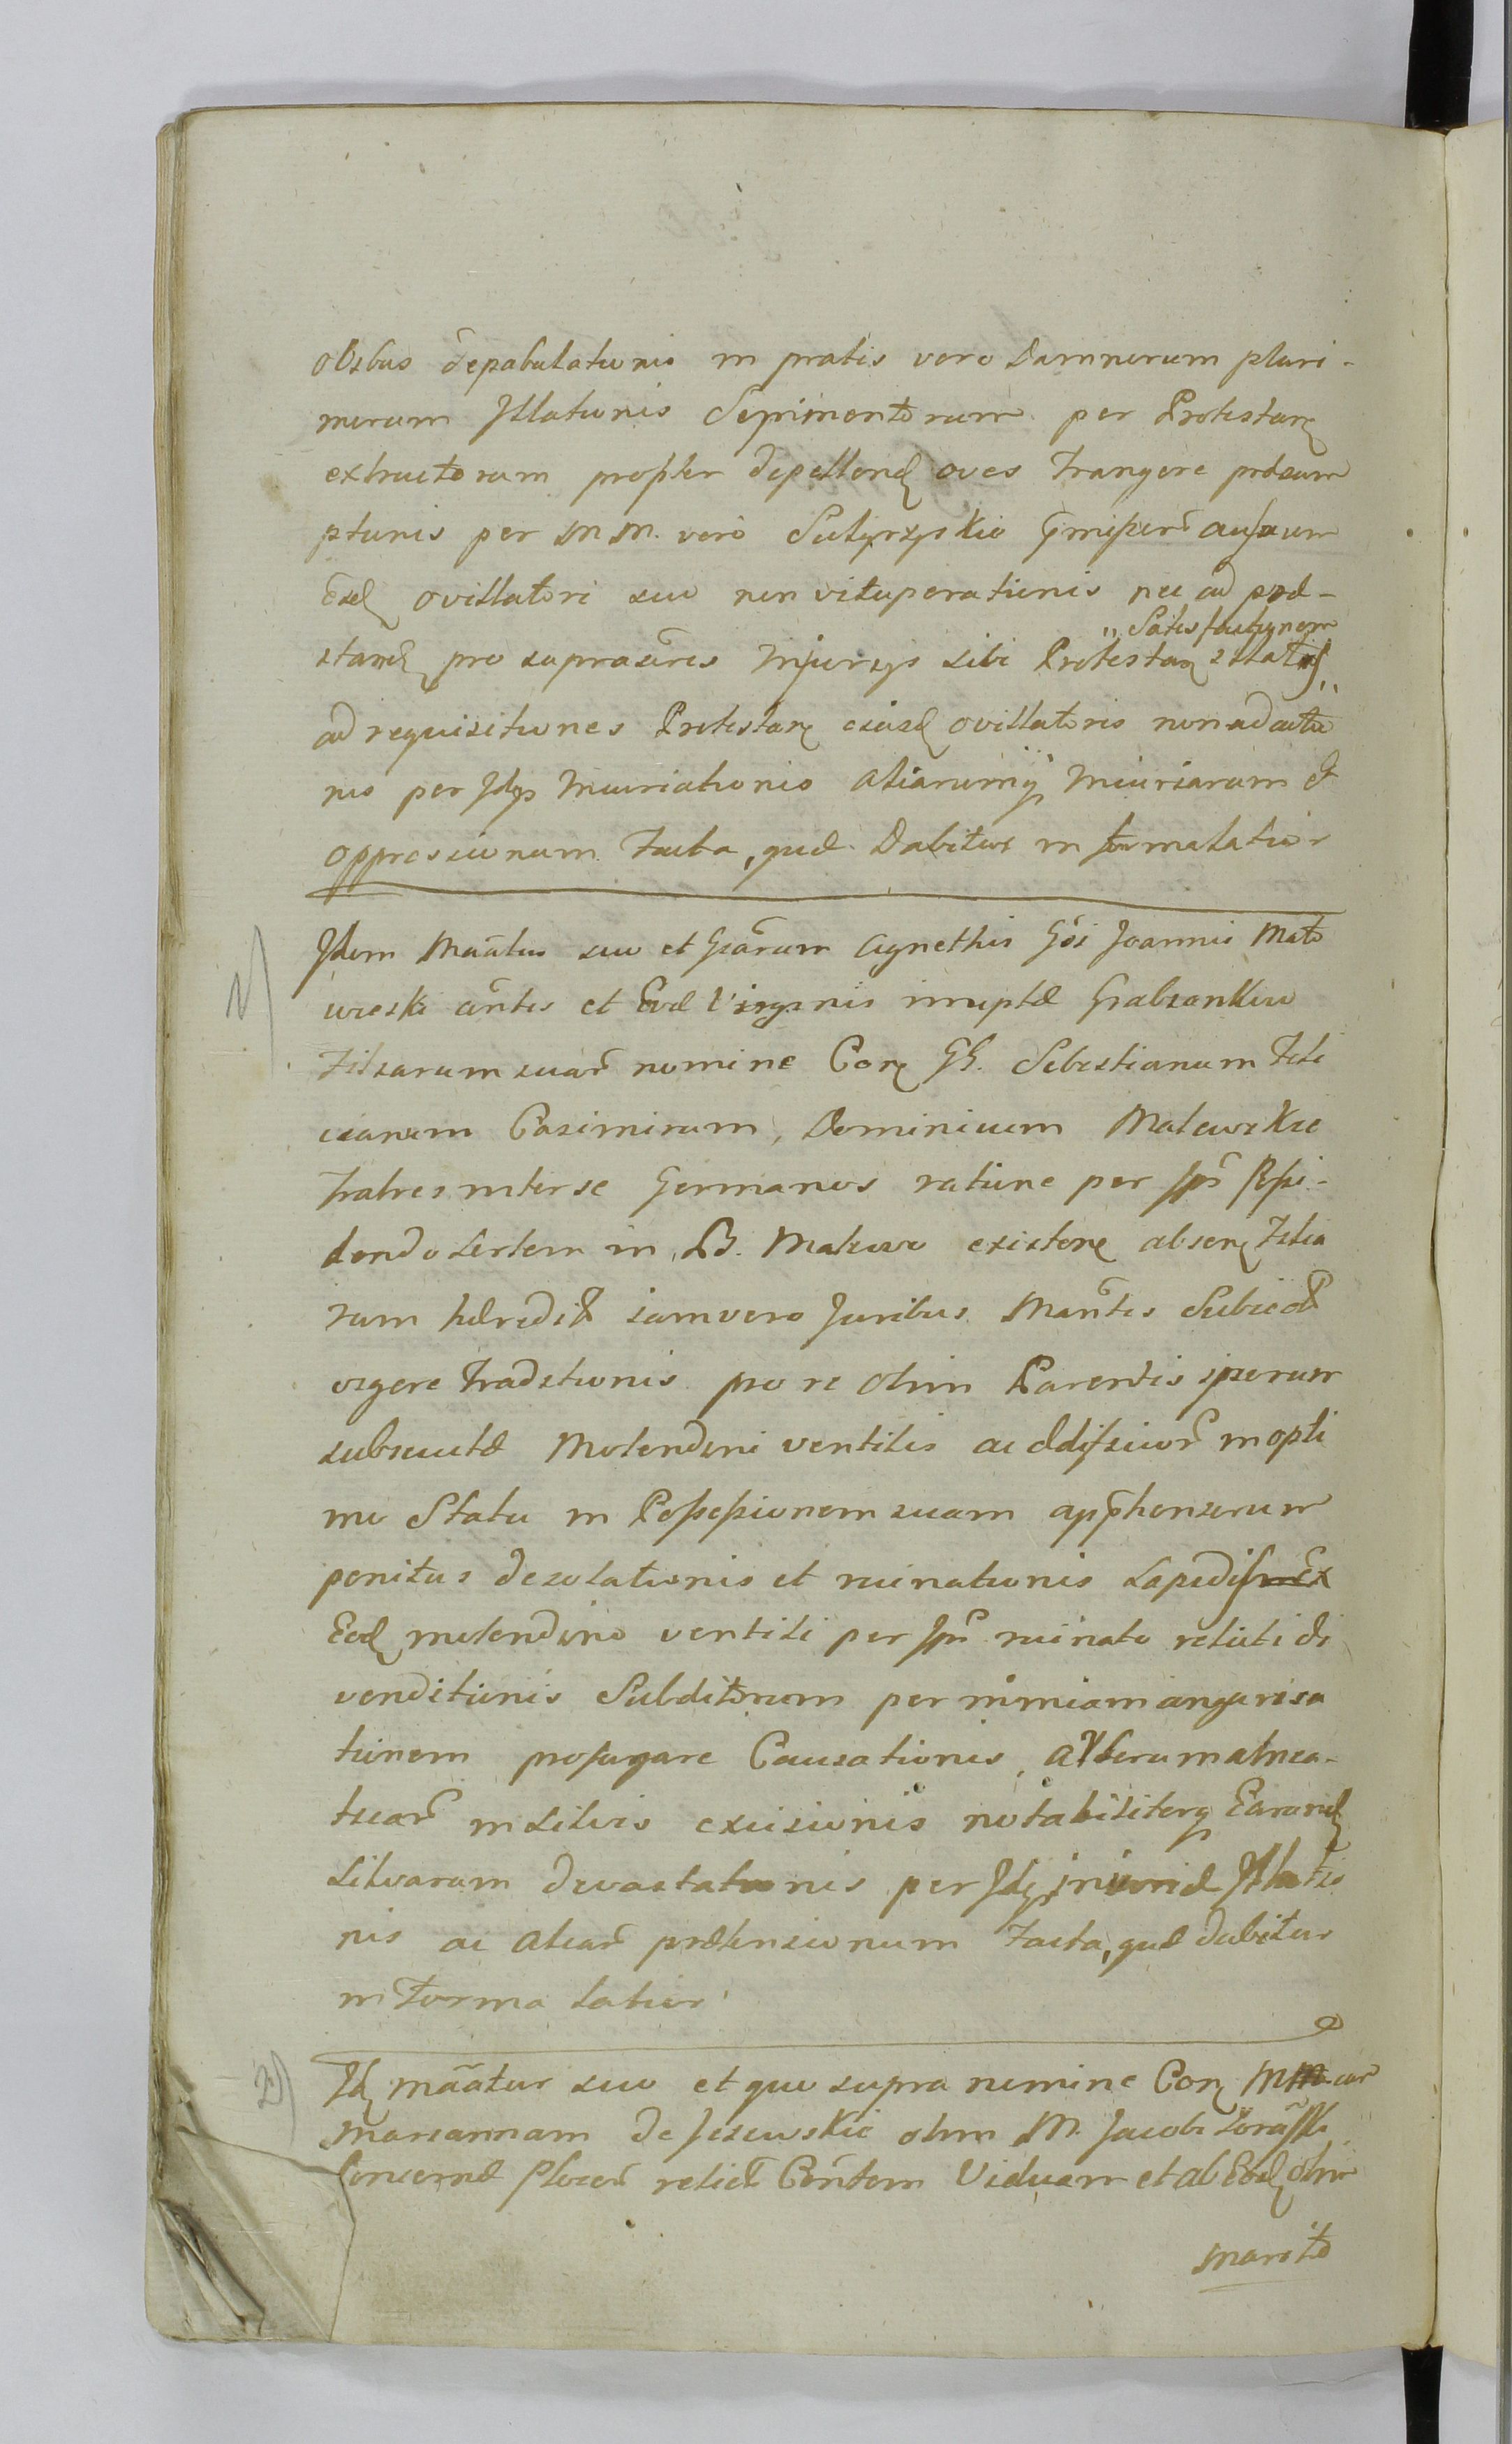 ovibus depabulationis in pratis vero Damnorum pluri-
morum Illationis Sepimentorum per Protestan
extructorum propter depellend oves frangere praesum
ptionis per M M. vero Sutyrzyskie ausum
eid ovillatori suo non vituperationis nec ad prae-
stand pro suprascris Injurys sibi Protestan illatis „Satisfactionem„
ad requisitiones Protestan eiusd ovillatoris non adactio
nis per Idqs Iniuriationis aliarumq Iniuriarum et
oppressionum Facta, quae Dabitur in forma latior
1) Idem Manatus suo et Gnarum Agnethis Gsi Joannis Mato
wieski cntis et Evae Virginis innuptae Grabzankiw
Filiarum suar nomine Con GG. Sebestianum Feli
cianum Casimirum, Dominicum Malewskie
Fratres inter se Germanos ratione per Ips Possi-
dendo sortem in B. Malewo existen absen Filia
rum haeredit iamvero Juribus Mantis Subiect
vigore Traditionis pro re olim Parentis ipsorum
subsecutae Molendini ventilis ac aedificior in opti
mo Statu in Possessionem suam apprehensorum
penitus desolationis et ruinationis Lapidis Ex
Eod molendino ventili per Ips ruinato relicti di
venditionis Subditorum per nimiam angarisa
tionem profugare Causationis, arborum alnea-
ticar in silvis excisionis notabiliterq Earund
silvarum devastationis per Idq iniuriae Illatio
nis ac aliar praetensionum Facta, quae dabitur
in Forma latior
2) Id manatur suo et quo supra nomine Con MM
Mariannam de Jezewskie olim M. Jacobi
Plocen relict Contem Viduam et ab Eod olim
marito